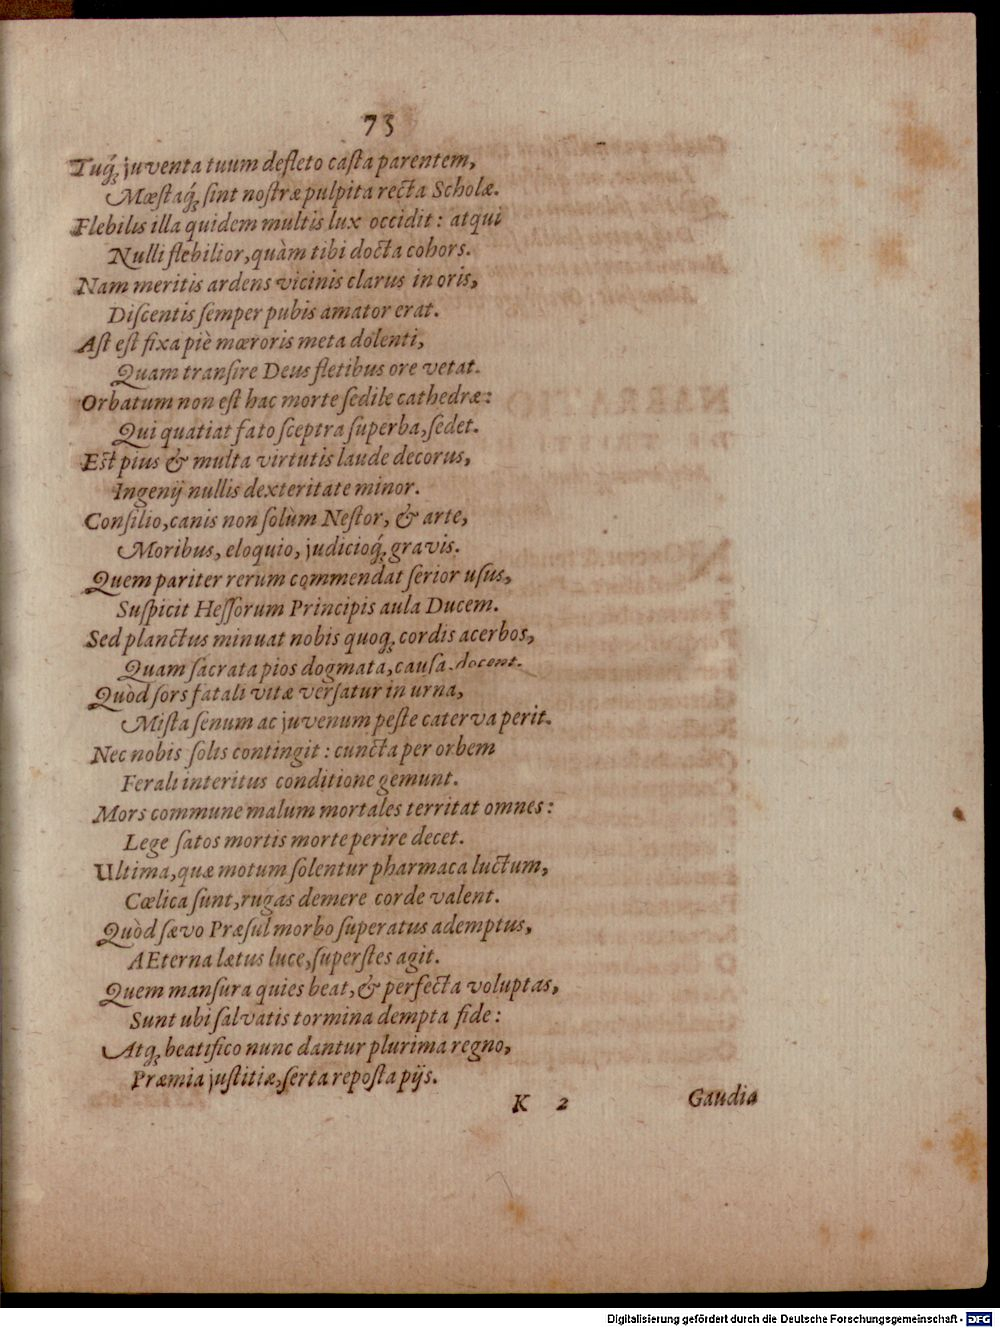 75
Tuq́; juventa tuum defleto casta parentem,
Mœstaq́; sint nostræ pulpita recta Scholæ.
Flebilis illa quidem multis lux occidit: atqui
Nulli flebilior, quàm tibi docta cohors.
Nam meritis ardens vicinis clarus in oris,
Discentis semper pubis amator erat.
Ast est fixa piè mœroris meta dolenti,
Quam transire Deus fletibus ore vetat.
Orbatum non est hac morte sedile cathedræ:
Qui quatiat fato sceptra superba, sedet.
Est pius & multa virtutis laude decorus,
Ingenij nullis dexteritate minor.
Consilio, canis non solùm Nestor, & arte,
Moribus, eloquio, judicioq́; gravis.
Quem pariter rerum commendat serior usus,
Suspicit Hessorum Principis aula Ducem.
Sed planctus minuat nobis quoq; cordis acerbos,
Quam sacrata pios dogmata, causa docent.
Quòd sors fatali vitæ versatur in urna,
Mista senum ac juvenum peste caterva perit.
Nec nobis solis contingit: cuncta per orbem
Ferali interitus conditione gemunt.
Mors commune malum mortales territat omnes:
Lege satos mortis morte perire decet.
Ultima, quæ motum solentur pharmaca luctum,
Cœlica sunt, rugas demere corde valent.
Quòd sævo Præsul morbo superatus ademptus,
AEterna lætus luce, superstes agit.
Quem mansura quies beat, & perfecta voluptas,
Sunt ubi salvatis tormina dempta fide:
Atq; beatifico nunc dantur plurima regno,
Præmia justitiæ, serta reposta pijs.
K 2 Gaudia
Digitalisierung gefördert durch die Deutsche Forschungsgemeinschaft - DFG